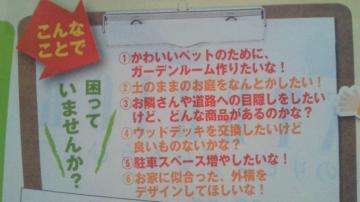 こんな
ことで
困って
いませんか?
①かわいいペットのために、
ガーデンルーム作りたいな!
②土のままのお庭をなんとかしたい!
③お隣さんや道路への目隠しをしたい
けど、どんな商品があるのかな?
④ウッドデッキを交換したいけど
良いものないかな?
⑤駐車スペース増やしたいな!
⑥お家に似合った、外構を
デザインしてほしいな!